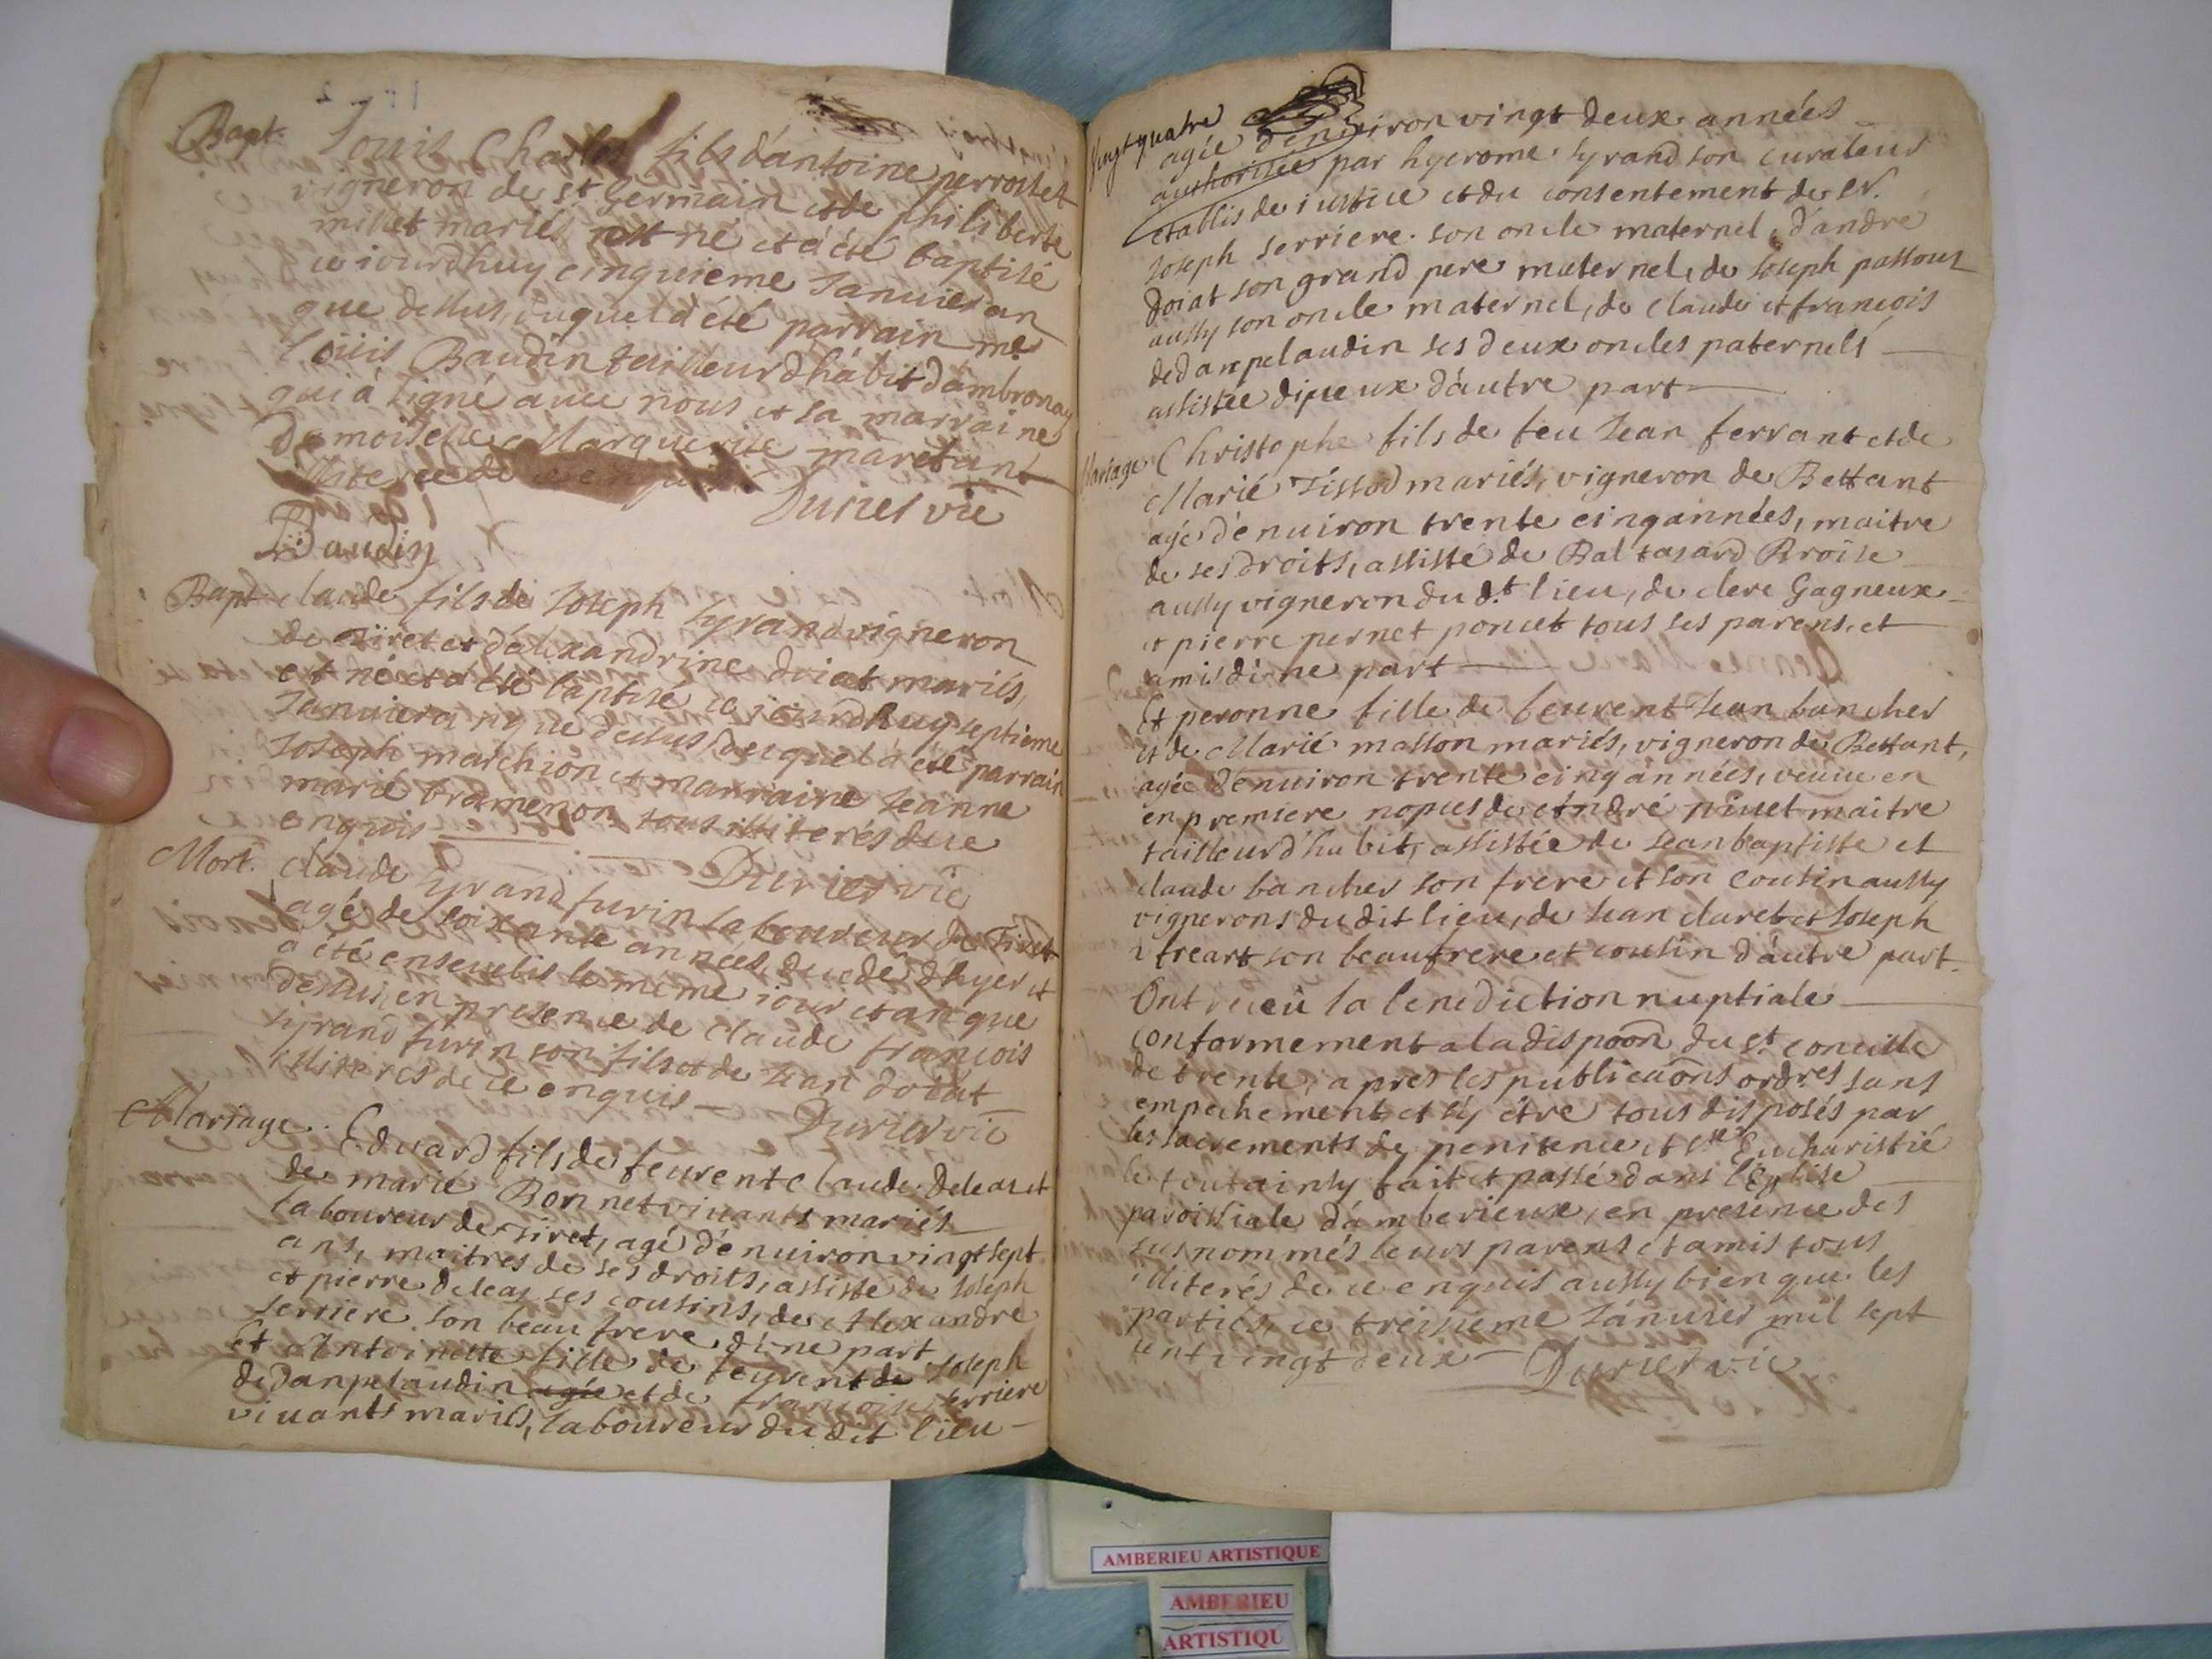 Bapt. Louis Charles fils d'antoine perrosset
vigneron de st Germain et de philiberte
millet mariés est né et a été baptisé
ce iourdhuy cinquieme Januier an
que dessus, duquel a été parrain me
Loüis Baudin tailleur dhabit d'ambronay
qui à signé auec nous et sa marraine
Demoiselle Marguerite maretant
illiteree de ce enquise
Durier vic
Baudin
Bapt. claude fils de Joseph Tyrand vigneron
de tiret et d'alexandrine doiat mariés,
est né et a été baptisé ce iourdhuy septieme
Januier an que dessus, duquel a été parrain
Joseph marchion et marraine Jeanne
marie bramenon tous illiterés de ce
enquis
Durier vic
Mort. Claude Tyrand furin laboureur de Tiret
agé de soixante années, decedé dhyer et
a été enseuelis le même iour et an que
dessus, en presence de Claude francois
tyrand furin son fils et de Jean doiat
illiterés de ce enquis
Durier vic
Mariage. Eduard fils de feurent claude deleaz et
de marie Bonnet viuants mariés
laboureur de tiret, agé d'enuiron vingt sept
ans, maitres de ses droits, assisté de Joseph
et pierre deleaz ses cousins, de Alexandre
serriere son beau frere d'une part
Et Antoinette fille de feurent de Joseph
dedanpelaudin agée et de francoise serriere
viuants mariés, laboureur du dit lieu
vingt quatre
agée d'enuiron vingt deux années
authorisée par hyerome tyrand son curateur
etablis de iustice et du consentement de sr.
Joseph serriere son oncle maternel, d'andré
doiat son grand pere maternel, de Joseph passout
aussy son oncle maternel, de claude et francois
dedanpelaudin ses deux oncles paternels
assistée d'iceux d'autre part
Mariage Christophe fils de feu Jean ferrant et de
Marie Tissod mariés, vigneron de Bettant
agé d'enuiron trente cinq années, maitre
de ses droits, assisté de Baltasard Broise
aussy vigneron du dt. lieu, de clere Gagneux
et pierre pernet poncet tous ses parens, et
amis d'une part
Et peronne fille de feurent Jean bancher
et de Marie masson mariés, vigneron de Bettant,
agée d'enuiron trente cinq années, veuue en
en premiere nopces de André piuet maitre
tailleur d'habit, assistée de Jean baptiste et
claude bancher son frere et son cousin aussy
vignerons du dit lieu, de Jean claret et Joseph
treart son beaufrere et cousin d'autre part.
Ont receü la benediction nuptiale
conformement a la dispoon du st concille
de trente, apres les publicaons ordres sans
empechement et s'y être tous disposés par
les sacrements de penitence et ste Eucharistie
le tout ainsy fait et passé dans l'Eglise
paroissiale d'amberieux, en presence des
sus nommés leurs parens et amis tous
illiterés de ce enquis aussy bien que les
parties, ce treisieme Januier mil sept
cent vingt deux
Durier vic
AMBERIEU ARTISTIQUE
AMBERIEU
ARTISTIQU